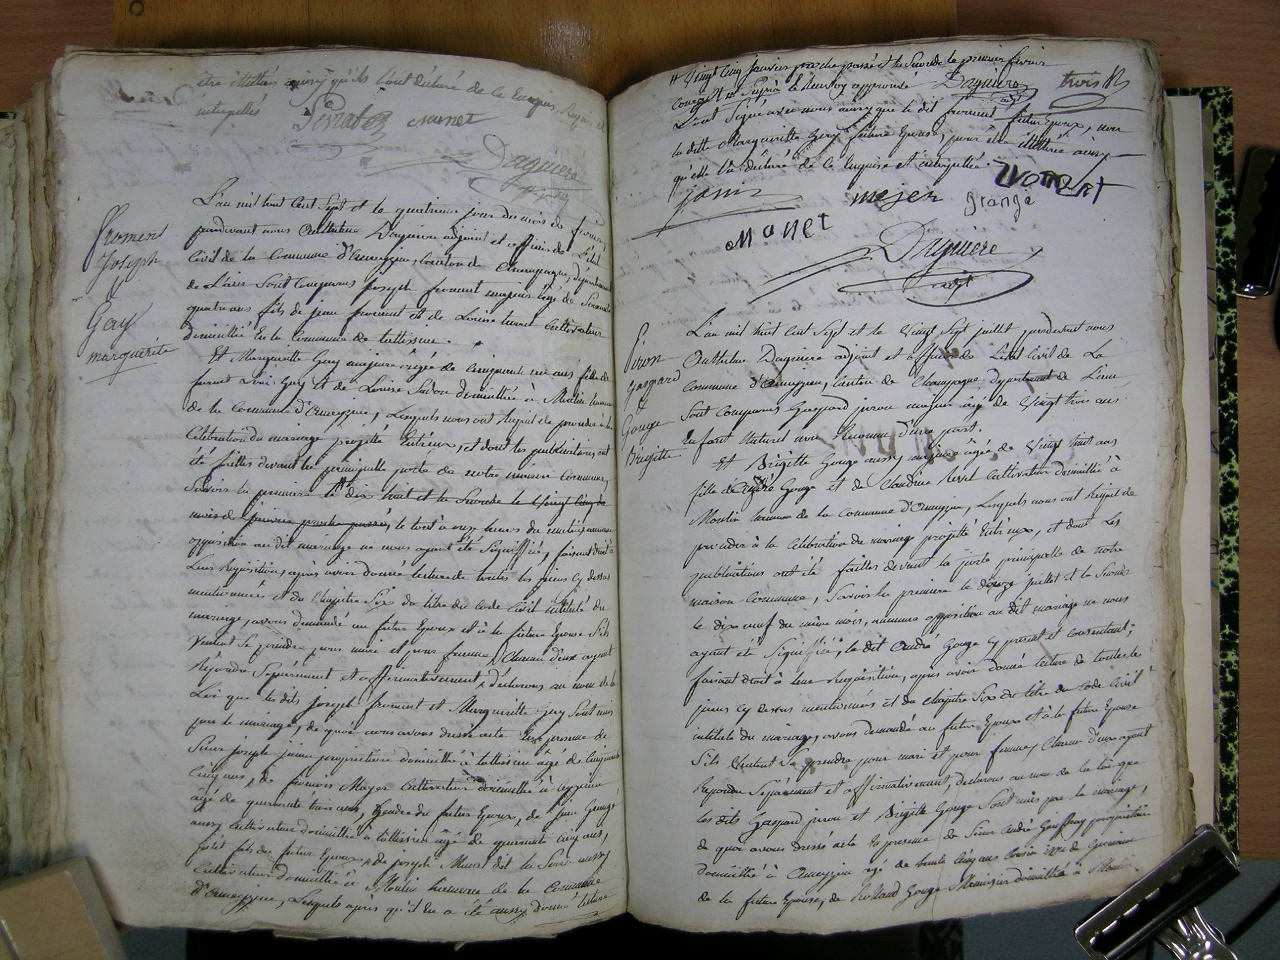 être illitérés ainsy qu'ils l'ont déclaré de ce Enquis Requis et
interpellés
Daguiere
adjt
froment
Joseph
Gay
marguerite
L'an mil huit Cent Sept et le quatrieme jour du mois de fevrier
pardevant nous Anthelme Daguiere adjoint et officier de L'état
Civil de la Commune d'Ameyzieu, Canton de Champagne, département
de L'ain Sont Comparus Joseph froment majeur âgé de Soixante
quatre ans fils de jean froment et de Louise Cultivateur
domicillié En la Commune de talissieu.
Et Marguerite Gay majeure âgée de Cinquante six ans fille de
feu Gay et de Louise domicilliée à
de la Commune d'Ameyzieu, Lesquels nous ont Requis de proceder à la
Célébration du mariage projetté Entr'eux, et dont les publications ont
été faittes devant la principalle porte de notre maison Commune,
Savoir la premiere le dix huit et la Seconde le vingt Cinq du
mois de janvier proche passé, le tout à onze heures du matin aucune
opposition au dit mariage ne nous ayant été Signiffiée, faisant droit à
Leurs Requisitions, après avoir donné lecture de toutes les pieces cy dessus
mentionnées et du Chapitre Six du titre du Code Civil intitulé du
mariage, avons demandé au futur Epoux et à la future Epouse S'ils
Veulent Se prendre pour mari et pour femme, Chacun d'eux ayant
Répondu Séparement et affirmativement, declarons au nom de la
Loi que les dits Joseph froment et Marguerite Gay Sont unis
par le mariage, de quoi avons dressé acte En presence de
Sieur joseph janin propriétaire domicillié à talissieu âgé de Cinquante
Cinq ans, de Mayer Cultivateur domicillié à
âgé de quarante trois ans, du futur Epoux, de
aussy Cultivateur domicillié à talissieu âgé de quarante Cinq ans,
du futur Epoux, et de joseph Manet dit
Cultivateur domicillié à de la Commune
d'Ameyzieu, Lesquels après qu'il leu a été aussy donné lecture
# Vingt Cinq janvier proche passé et la Seconde le premier fevrier
Courant Daguiere
adjt
trois
Ont Signé avec nous ainsy que le dit froment futur Epoux, non
la ditte Marguerite Gay future Epouse, pour être illitérée ainsy
qu'elle l'a déclaré de ce Enquise et interpellée.
janin
mejer
grange
manet
Daguiere
adjt
Piron
Gaspard
Gouge
Brigitte
L'an mil huit Cent Sept et le Vingt Sept juillet pardevant nous
Anthelme Daguiere adjoint et officier de L'état Civil de La
Commune d'Ameyzieu, Canton de Champagne département de L'ain
Sont Comparus Gaspard piron majeur âgé de Vingt trois ans
Enfant Naturel d'une part.
Et Brigitte Gouge aussy majeure âgée de Vingt huit ans
fille de André Gouge et de Claudine Revel Cultivateur domicillié à
de la Commune d'Ameyzieu, Lesquels nous ont Requis de
proceder à la Célébration du mariage projetté Entr'eux, et dont les
publications ont été faittes devant la porte principalle de notre
maison Commune, Savoir la premiere le douze juillet et la Seconde
le dix neuf du même mois, aucune opposition au dit mariage ne nous
ayant été Signiffiée, le dit André Gouge cy present et consentant,
faisant droit à leur Requisition, après avoir donné lecture de toutes les
pieces cy dessus mentionnées et du chapitre Six du titre du Code Civil
intitulé du mariage, avons demandé au futur Epoux et à la future Epouse
S'ils Veulent Se prendre pour mari et pour femme, Chacun d'eux ayant
Répondu Séparement et affirmativement, declarons au nom de la loi que
les dits Gaspard piron et Brigitte Gouge Sont unis par le mariage,
de quoi avons dressé acte En presence de Sieur André Geoffray propriétaire
domicillié à Ameyzieu âgé de trente Cinq ans Cousin
de la future Epouse, de Rolland Gouge Menuisier domicillié à